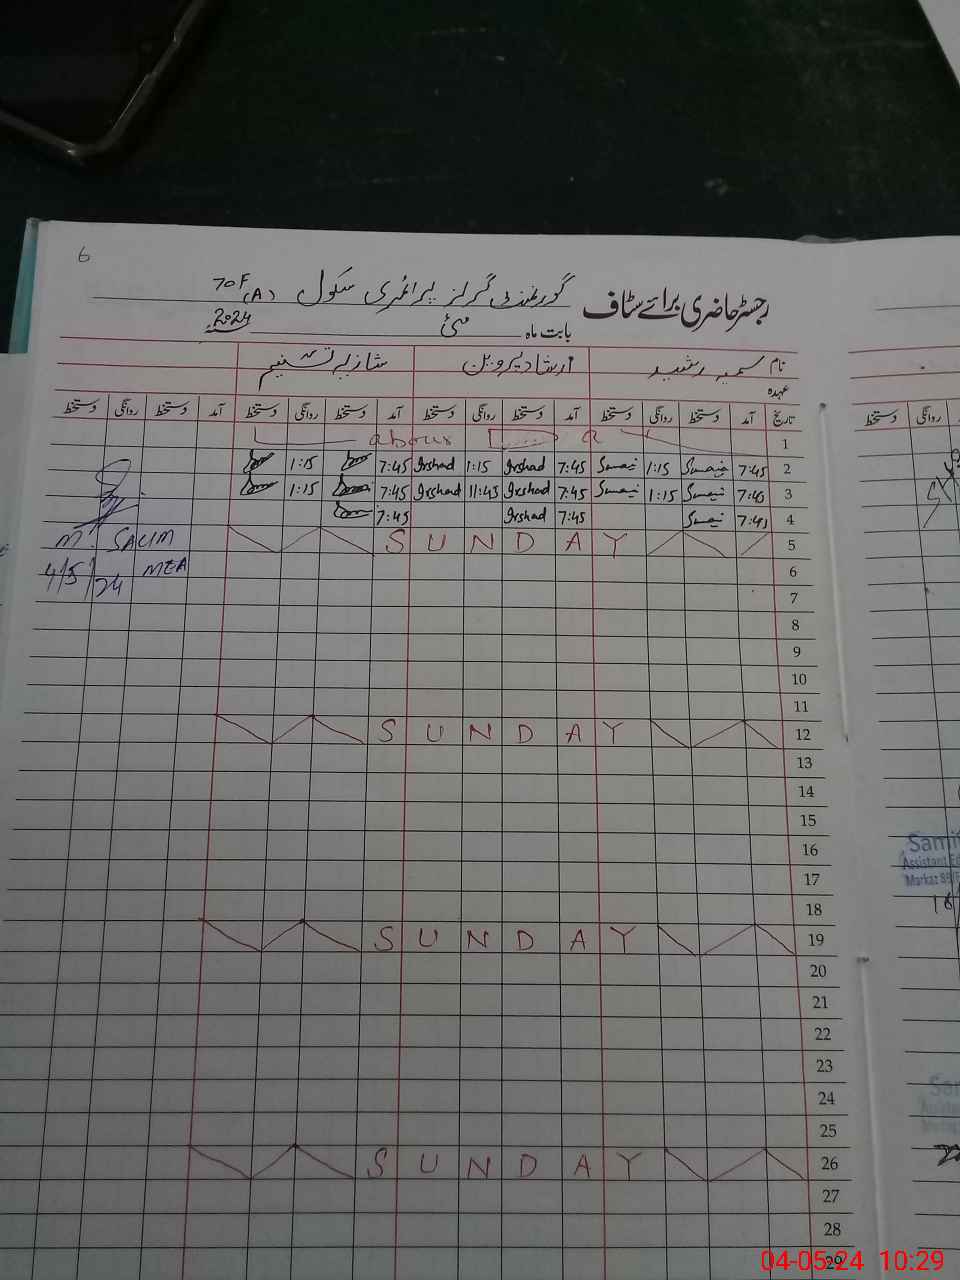 6
گورنمنٹ گرلز پرائمری سکول 70F (A)
رجسٹر حاضری برائے سٹاف
بابت ماہ مئی 2024
نام سمیہ رشید ارشاد پروین شازیہ تسنیم
عہدہ
تاریخ آمد دستخط روانگی دستخط آمد دستخط روانگی دستخط آمد دستخط روانگی دستخط آمد دستخط روانگی دستخط
1
2 7:45 1:15 7:45 Irshad 1:15 Irshad 7:45 1:15
3 1:15 7:45 Irshad 11:45 Irshad 7:45 1:15
4 7:45 Irshad 7:45
5 SUNDAY
M. SALIM
6 MEA
4/5/24
7
8
9
10
11
12 SUNDAY
13
14
15
16
17
18
19 SUNDAY
20
21
22
23
24
25
26 SUNDAY
27
28
29
دستخط روانگی
Assistant Ed
04-05-24 10:29